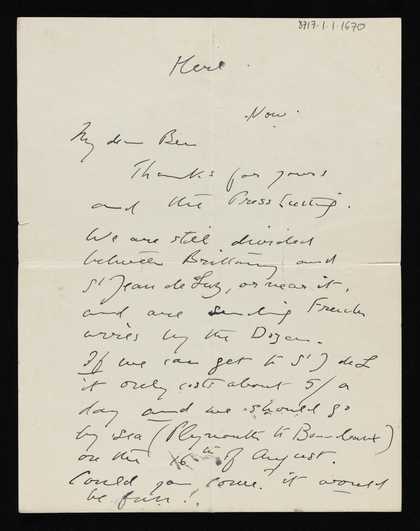 8717.1.1.1670
Here.
Now.
My dear Ben
Thanks for yours
and the Press Cutting.
We are still divided
between Brittany and
St Jean de Luz, or near it,
and are sending French
wires by the Dozen.
If we can get to St J de L
it only costs about 5/ a
day and we should go
by sea (Plymouth to Bordeaux)
on the 16th of August.
Could you come. it would
be fun!.